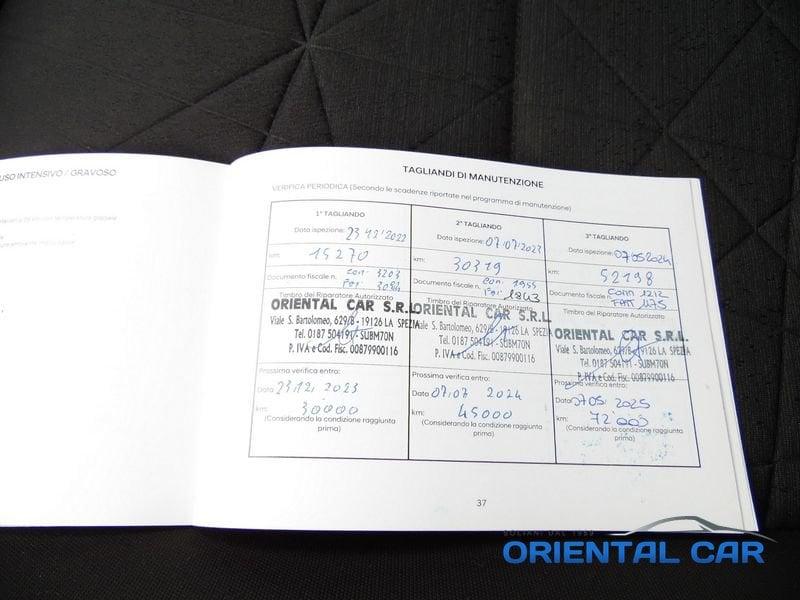 USO INTENSIVO / GRAVOSO
TAGLIANDI DI MANUTENZIONE
VERIFICA PERIODICA (Secondo le scadenze riportate nel programma di manutenzione)
1° TAGLIANDO
Data ispezione: 23 12/2022
km: 15270
Documento fiscale n. con. 3203
Timbro del Riparatore Autorizzato
ORIENTAL CAR S.R.L.
Viale S. Bartolomeo, 629/B - 19126 LA SPEZIA
Tel. 0187 504191 - SUBM70N
P. IVA e Cod. Fisc. 00879900116
Prossima verifica entro:
Data 23.12. 2023
km: 30000
(Considerando la condizione raggiunta
prima)
2° TAGLIANDO
Data ispezione: 07/07/2023
km: 30319
Documento fiscale n. con. 1955
1843
Timbro del Riparatore Autorizzato
ORIENTAL CAR S.R.L.
Viale S. Bartolomeo, 629/B - 19126 LA SPEZIA
Tel. 0187 504191 - SUBM70N
P. IVA e Cod. Fisc. 00879900116
Prossima verifica entro:
Data 07.07 2024
km: 45000
(Considerando la condizione raggiunta
prima)
3° TAGLIANDO
Data ispezione: 07052024
km: 52198
Documento fiscale n. COMM 1212
FATT 1175
Timbro del Riparatore Autorizzato
ORIENTAL CAR S.R.L.
Viale S. Bartolomeo, 629/B - 19126 LA SPEZIA
Tel. 0187 504191 - SUBM70N
P. IVA e Cod. Fisc. 00879900116
Prossima verifica entro:
Data 07051 2025
km: 72003
(Considerando la condizione raggiunta
prima)
37
SULTANI DAL 1959
ORIENTAL CAR